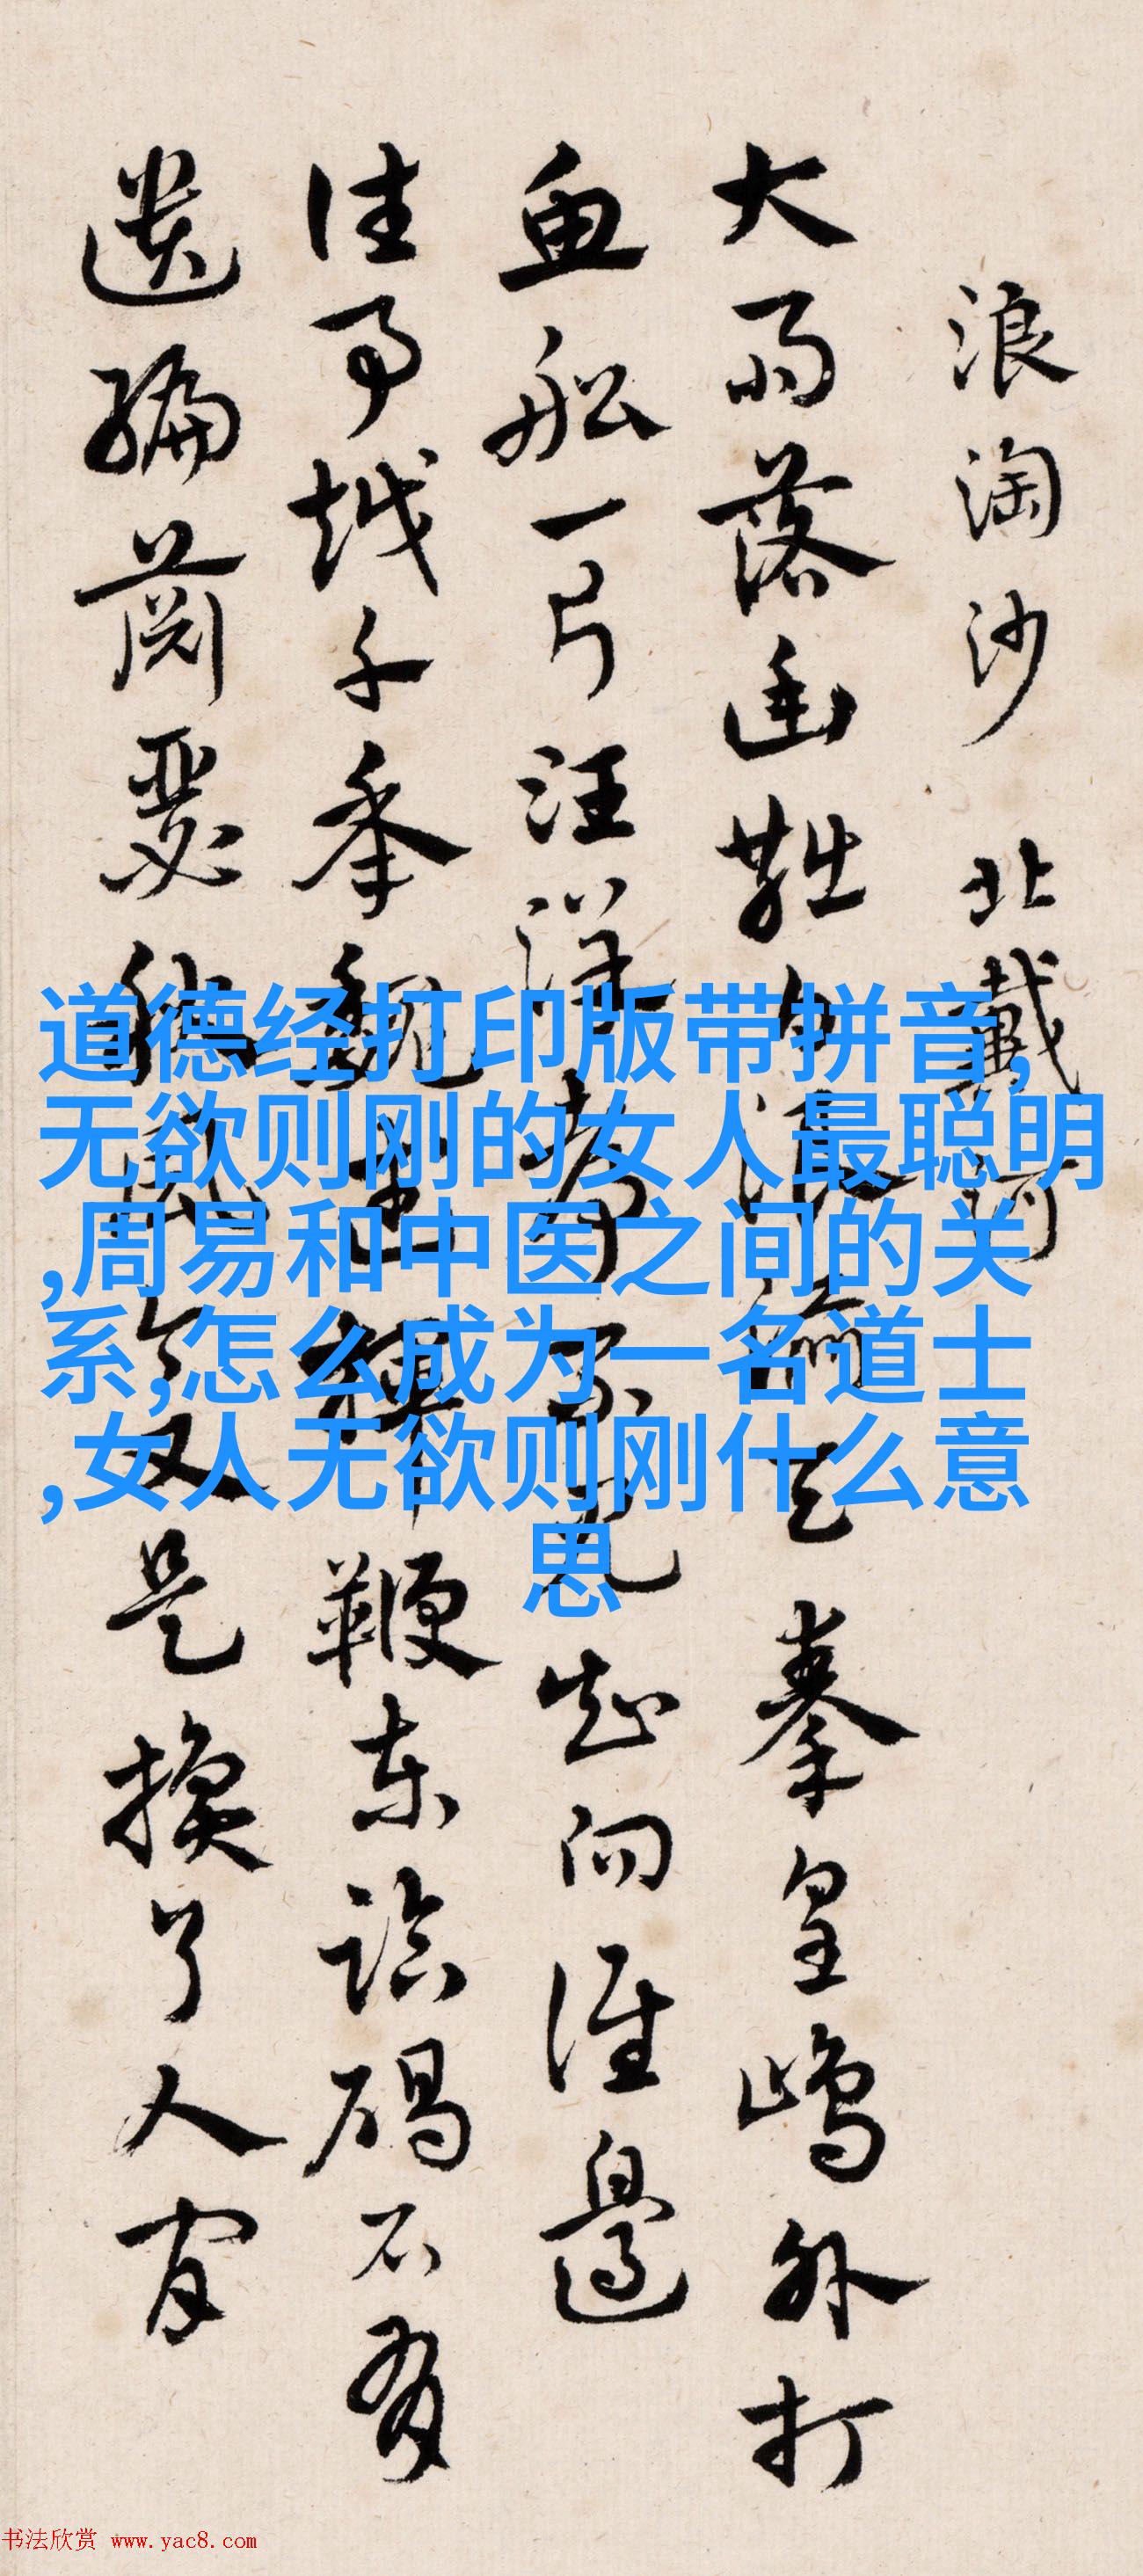 浪淘沙 北戴河
大雨落幽燕白浪滔天 秦皇島外打
魚船一片汪洋都不見知向誰邊
往事越千年魏武揮鞭東臨碣石有
遺編蕭瑟秋風今又是換了人间
道德经打印版带拼音,
无欲则刚的女人最聪明
,周易和中医之间的关
系,怎么成为一名道士
,女人无欲则刚什么意
思
书法欣赏 www.yac8.com